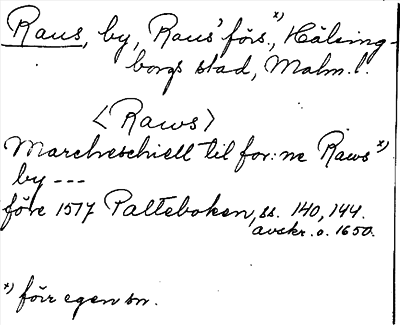 Raus, by, Raus' förs.,*) Hälsing-
borgs stad, Malm. l.
<Raws>
Marcheschiell til for:ne Raws*)
by ---
före 1517 Palteboken, ss. 140, 144.
avskr. o. 1650.
*) förr egen sn.